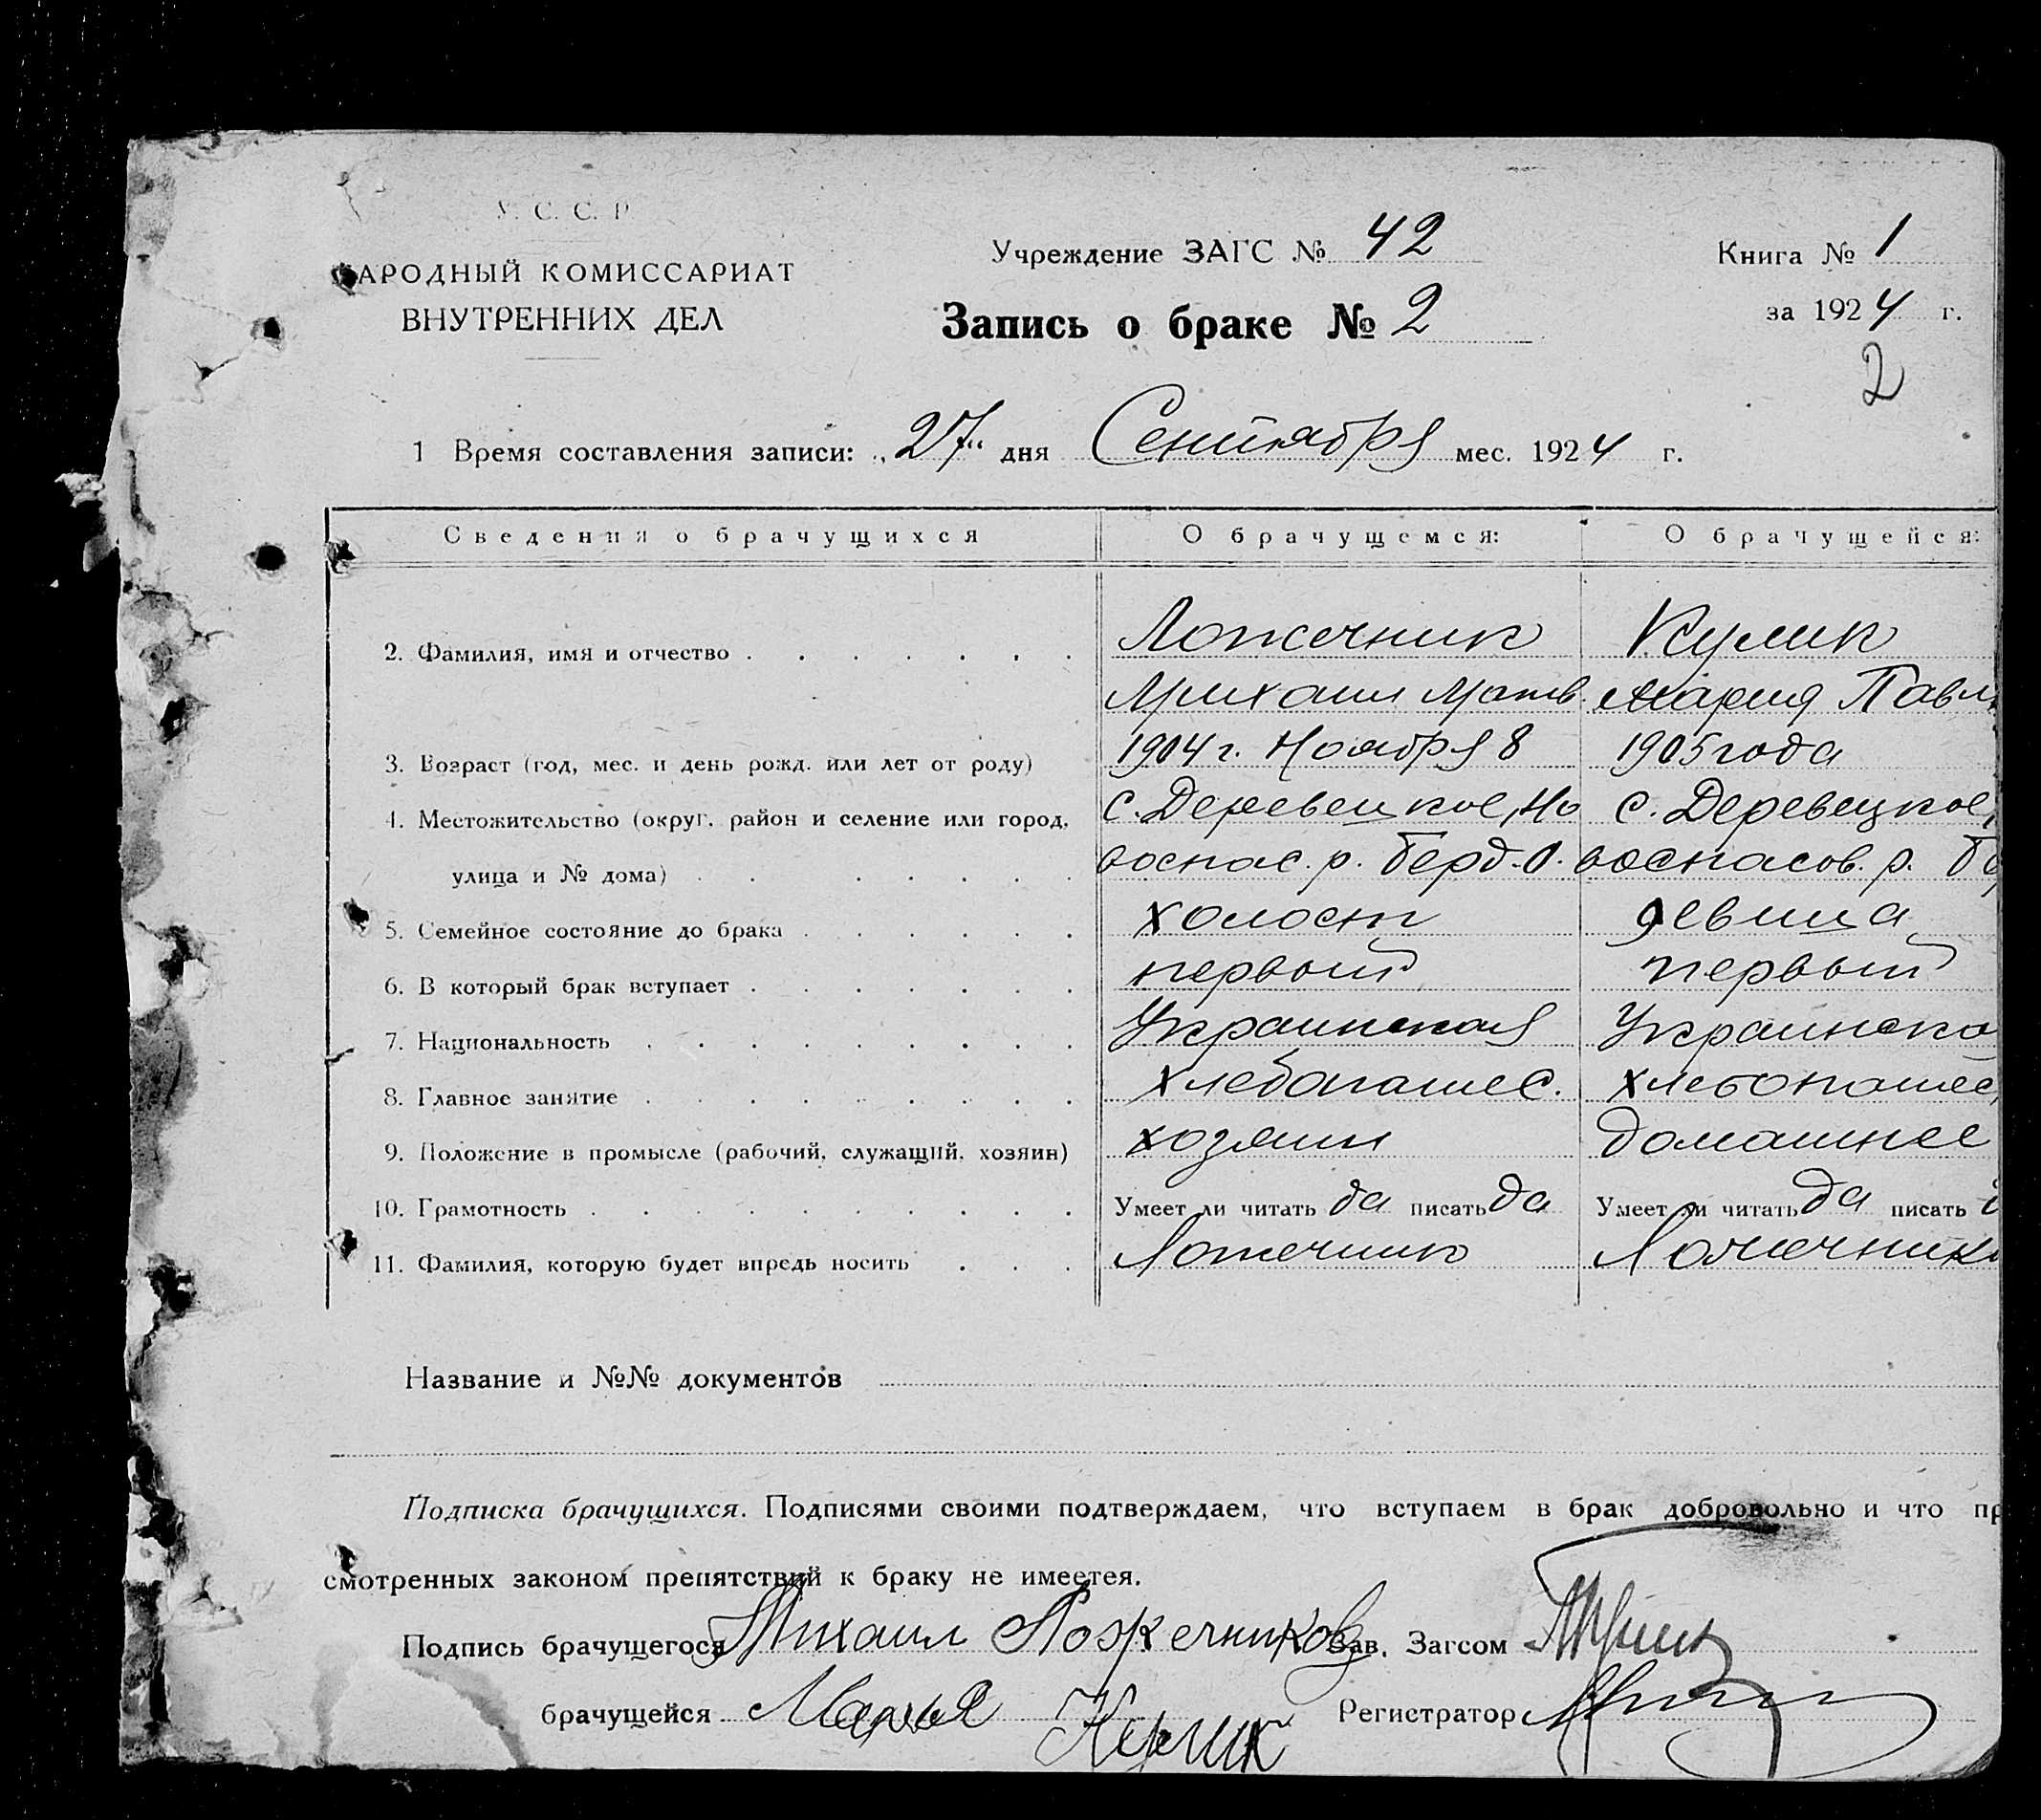 У. С. С. Р.
НАРОДНЫЙ КОМИССАРИАТ
ВНУТРЕННИХ ДЕЛ
Учреждение ЗАГС № 42
Запись о браке № 2
Книга № 1
за 1924 г.
2
1 Время составления записи: „27“ дня Сентября мес. 1924 г.
Сведения о брачущихся О брачущемся: О брачущейся:
2. Фамилия, имя и отчество Ложечник Кулик
Михаил Матв. Мария Павл
3. Возраст (год, мес. и день рожд. или лет от роду) 1904 г. Ноября 8 1905 года
4. Местожительство (округ, район и селение или город, с. Деревецкое, Но с. Деревецкое,
улица и № дома) воспас. р. Берд. О. воспасов. р. Бе
5. Семейное состояние до брака холост девица
6. В который брак вступает первый первый
7. Национальность Украинская Украинска
8. Главное занятие хлебопашес. хлебопашес
9. Положение в промысле (рабочий, служащий, хозяин) хозяин домашнее
10. Грамотность Умеет ли читать да писать да Умеет ли читать да писать д
11. Фамилия, которую будет впредь носить Ложечник Ложечник
Название и №№ документов
Подписка брачущихся. Подписями своими подтверждаем, что вступаем в брак добровольно и что пр
смотренных законом препятствий к браку не имеетея.
Подпись брачущегося Михаил Ложечников Зав. Загсом
брачущейся Марья Кулик Регистратор